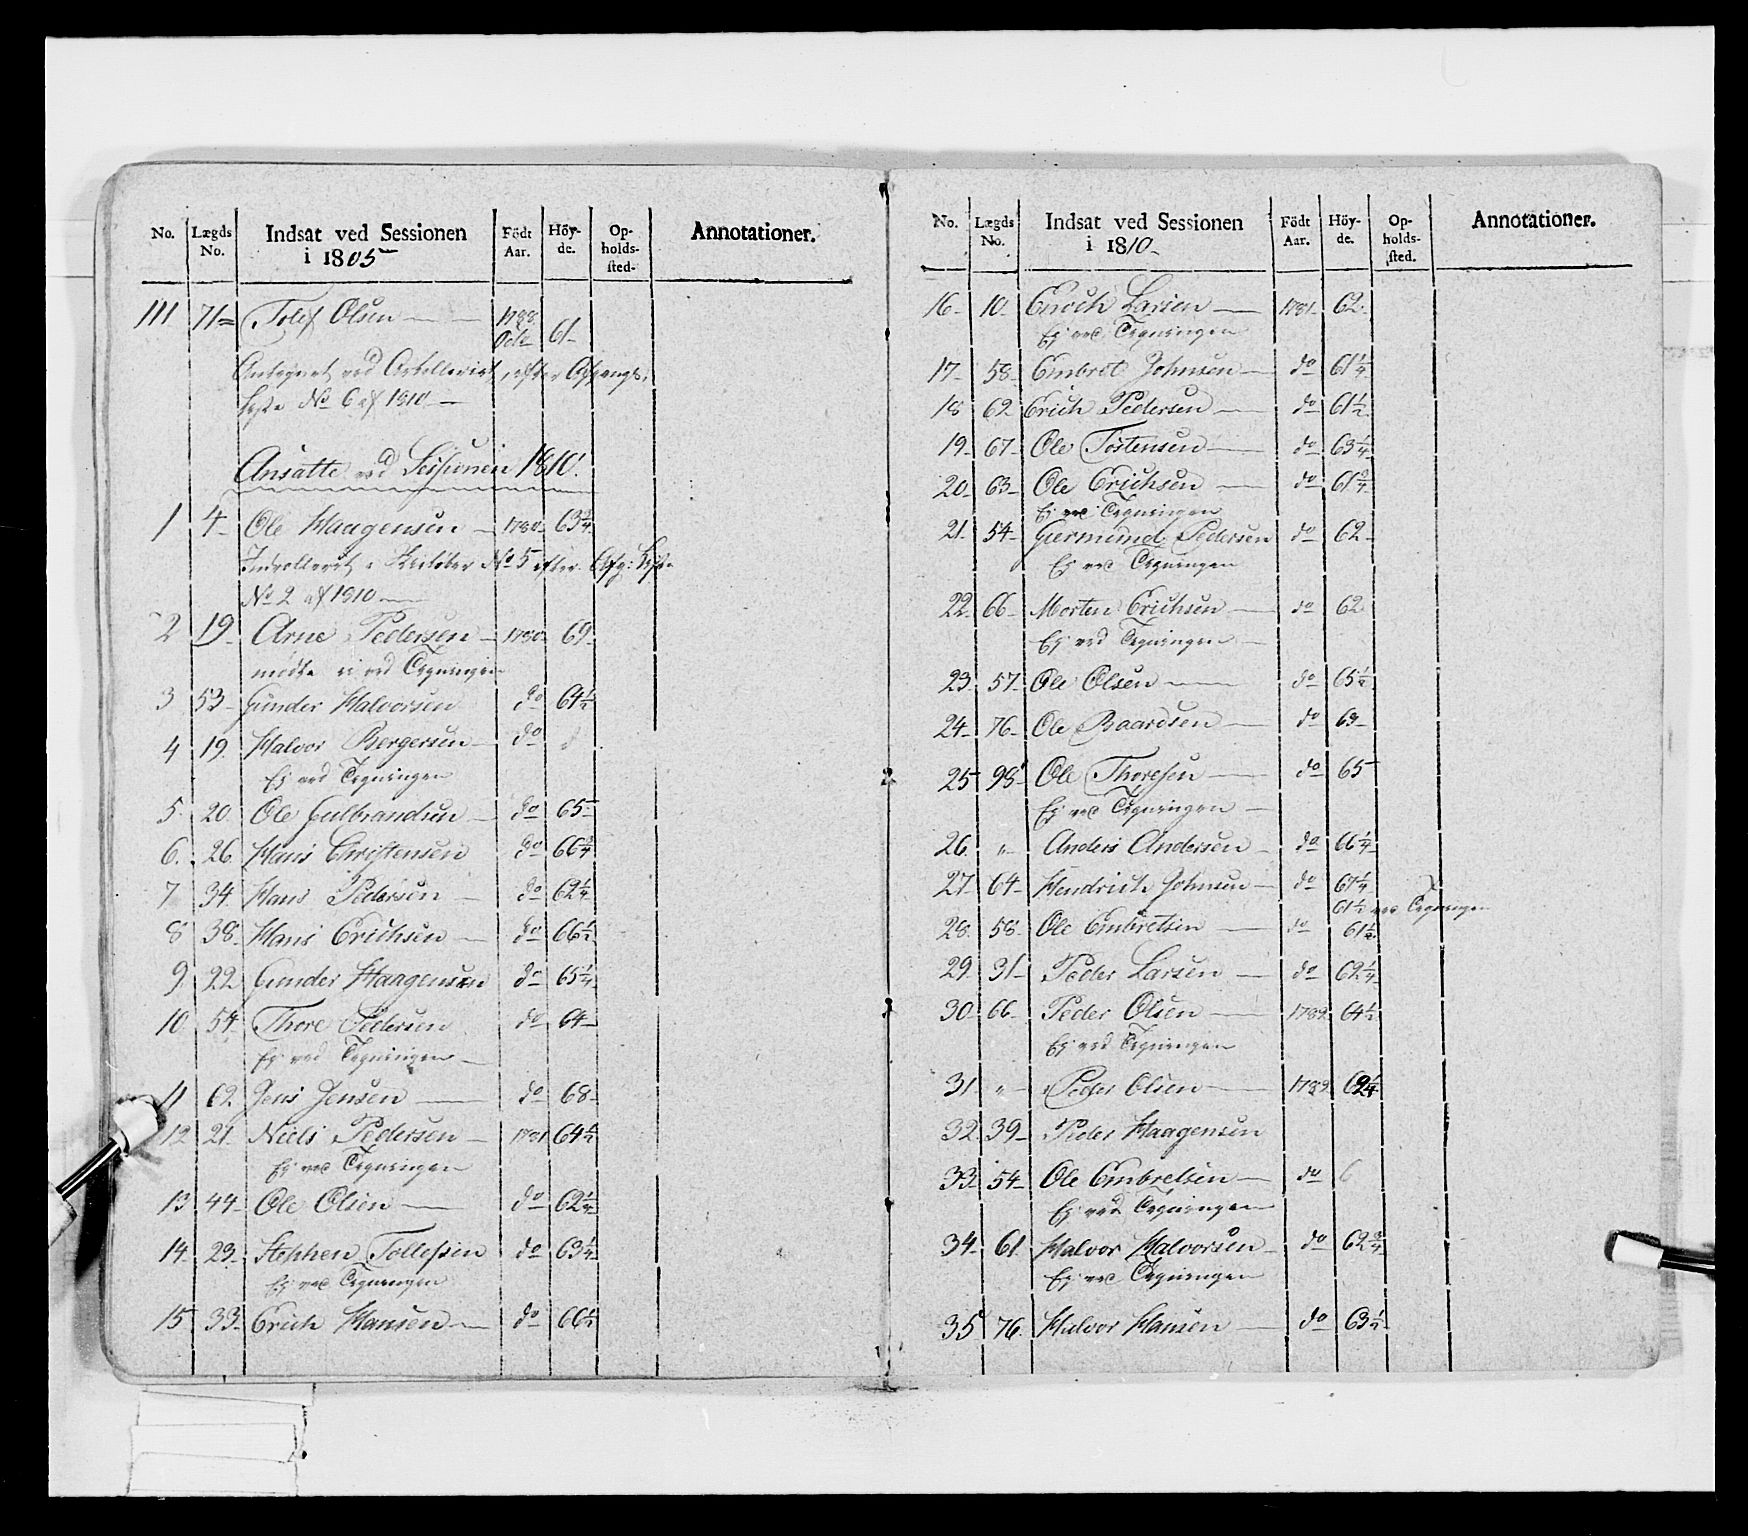 No. Lægds No. Indsat ved Sessionen i 1805 Födt Aar. Höyde. Opholdssted. Annotationer.
111 71 Tolef Olsen 1788 Octr 61
Antegnet ved Artelleriet, efter Afgangs
Liste No 6 af 1810
Ansatte ved Sessionen 1810.
1 4 Ole Haagensen 1780 63 3/4
Indrolleret i Kiølber No 5 efter Afg: Liste
No 2 af 1810
2 19 Arne Pedersen 1780 69
mødte ei ved Tegningen
3 53 Gunder Halvorsen do 64 1/2
4 19 Halvor Bergersen do
Ej ved Tegningen
5 20 Ole Gulbrandsen do 65
6. 26 Hans Christensen do 66 3/4
7 34 Hans Pedersen do 62 1/4
8 38 Hans Erichsen do 66 1/2
9 22 Gunder Haagensen do 65 1/4
10 54 Thore Pedersen do 64
Ej ved Tegningen
11 62 Jens Jensen do 68
12 21 Niels Pedersen 1781 64 1/2
Ej ved Tegningen
13 44 Ole Olsen do 62 1/4
14 23 Stephen Tollefsen do 63 1/4
Ej ved Tegningen
15 33 Erich Hansen do 66 1/2
No. Lægds No. Indsat ved Sessionen i 1810 Födt Aar. Höyde. Opholdssted. Annotationer.
16 10 Enoch Larsen 1781 62
Ej ved Tegningen
17 58 Embret Johnsen do 61 1/4
18 62 Erich Pedersen do 61 1/2
19 67 Ole Tostensen do 63 1/4
20 63 Ole Erichsen do 61 3/4
Ej ved Tegningen
21 54 Giermund Pedersen do 62
Ej ved Tegningen
22 66 Morten Erichsen do 62
Ej ved Tegningen
23 57 Ole Olsen do 65 1/2
24 76 Ole Baardsen do 63
25 98 Ole Thoresen do 65
Ej ved Tegningen
26 " Anders Andersen do 66 1/4
27 64 Hendrich Johnsen do 61 1/4
61 1/2 ved Tegningen
28 58 Ole Embretsen do 61 1/2
29 31 Peder Larsen do 62 1/4
30 66 Peder Olsen 1782 64 1/2
Ej ved Tegningen
31 " Peder Olsen 1782 62 1/4
32 39 Peder Haagensen
33 54 Ole Embretsen do 6
Ej ved Tegningen
34 61 Halvor Halvorsen do 62 3/4
Ej ved Tegningen
35 76 Halvor Hansen do 63 1/2